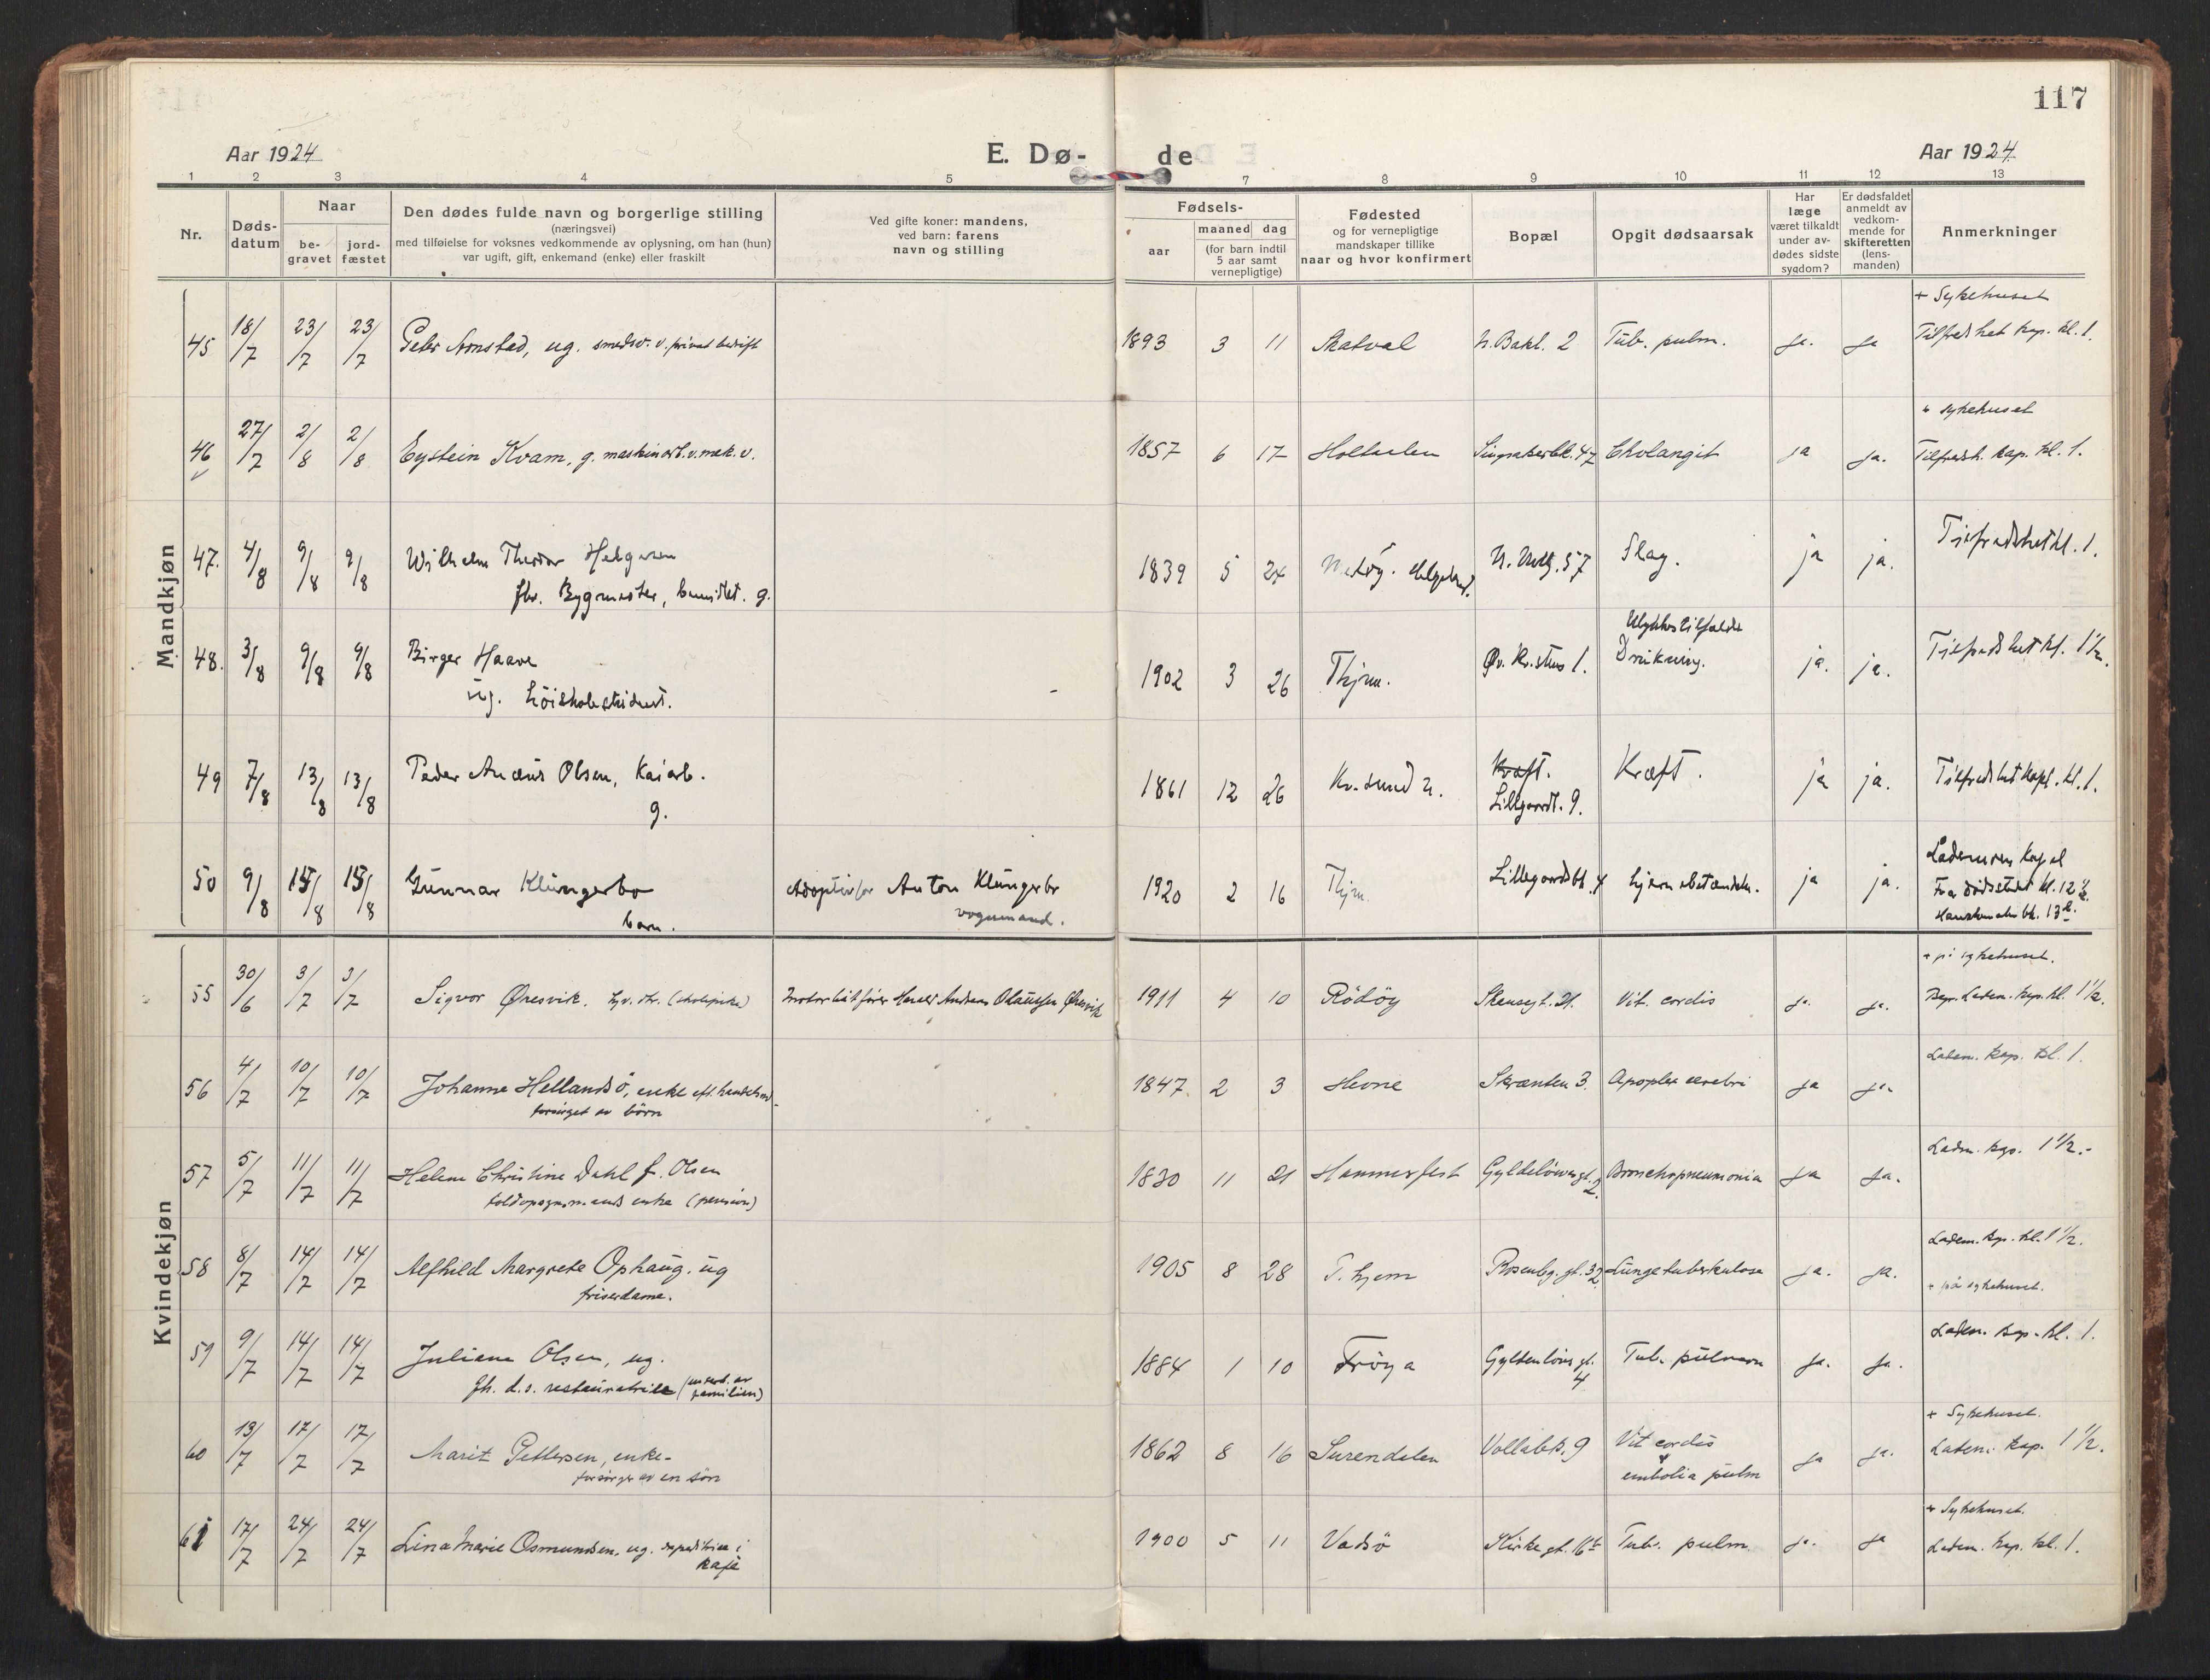 117
Aar 1924 E. Dø- de Aar 1924
1 2 3 4 5 7 8 9 10 11 12 13
Nr. Døds-datum Naar be-gravet jord-fæstet Den dødes fulde navn og borgerlige stilling (næringsvei) med tilføielse for voksnes vedkommende av oplysning, om han (hun) var ugift, gift, enkemand (enke) eller fraskilt Ved gifte koner: mandens, ved barn: farens navn og stilling Fødsels- aar maaned dag (for barn indtil 5 aar samt vernepligtige) Fødested og for vernepligtige mandskaper tillike naar og hvor konfirmert Bopæl Opgit dødsaarsak Har læge været tilkaldt under av-dødes sidste sygdom? Er dødsfaldet anmeldt av vedkom-mende for skifteretten (lens-manden) Anmerkninger
Mandkjøn
+ Sykehuset
45 18/7 23/7 23/7 Peter Arnstad, ug. smedsv. v. privat bedrift 1893 3 11 Skatval N. Bakl. 2 Tub. pulm. ja. ja Tilfredshet kap. kl. 1.
+ sykehuset
46 27/7 2/8 2/8 Eystein Kvam, g. maskinarb. v. mek. v. 1857 6 17 Holtaalen Singsakerbk. 47 Cholangit ja ja. Tilfredsh. kap. kl. 1.
47. 4/8 9/8 9/8 Wilhelm Theodor Helgesen 1839 5 24 Slag. ja ja. Tilfredshet kl. 1.
fhv. Bygmester, g.
Ulykkestilfælde
48. 3/8 9/8 9/8 Birger Haave 1902 3 26 Thjm. Øv. Kr.stens 1. Drukning. ja. ja. Tilfredshet kl. 1½.
ug. høiskolestudent.
49 7/8 13/8 13/8 Peder Anæus Olsen, Kaiarb. 1861 12 26 Kr.sund N. Kræft. Kræft. ja ja. Tilfredshet kapl. kl. 1.
g. Lillegaardt. 9.
50 9/8 15/8 15/8 Gunnar Klungerbo Adoptivfar Anton Klungerbo 1920 2 16 Thjm. Lillegaardsbk. 4 hjernebetændelse. ja ja. Lademoen Kapel
barn. vognmand. Fra dødsstedet kl. 12½.
Kvindekjøn
+ på sykehuset.
55 30/6 3/7 3/7 Sigvor Øresvik. (skolepike) Motorbåtfører Andreas Olaussen Øresvik 1911 4 10 Rödöy 21. Vit. cordis ja. ja. Begr. Ladem. kap. kl. 1½.
56 4/7 10/7 10/7 Johanne Hellandsö, enke eft. handelsmd. 1847 2 3 Hevne Skrænten 3. Apoplex cerebri ja ja. Ladem. kap. kl. 1.
forsörget av börn
57 5/7 11/7 11/7 Helene Christine Dahl f. Olsen 1830 11 21 Hammerfest Gyldelövesgt. 2. Bronchopneumonia ja ja. Ladm. kap. 1½.
toldopsynsmands enke (pension)
58 8/7 14/7 14/7 Alfhild Margrete Ophaug. ug 1905 8 28 T.hjem Rosenbg. gt. 32 Lungetuberkulose ja. ja. Ladem. kap. kl. 1½.
friserdame. + på sykehuset.
59 9/7 14/7 14/7 Juliane Olsen, ug. 1884 1 10 Fröya Gyldenlöves gt. 4 Tub. pulmon ja. ja. Ladem. kap. kl. 1.
fh. d.s. restauratrise (underh. av familien)
+ Sykehuset.
60 13/7 17/7 17/7 Marit Pettersen, enke- 1862 8 16 Surendalen Vollabk. 9 Vit cordis ja ja. Ladem. kap. 1½.
forsörges av en sön embolia pulm
+ Sykehuset.
61 17/7 24/7 24/7 Lina Marie Osmundsen, ug. expeditrise i kafé 1900 5 11 Vadsö Kirkegt. 16 Tub. pulm. ja. ja Ladem. kap. kl. 1.